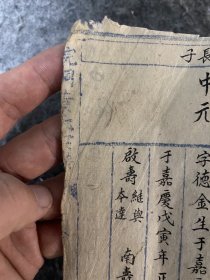 長子
中元
字德金生于嘉
于嘉慶戊寅年正
啟壽 繼與
本達
南壽